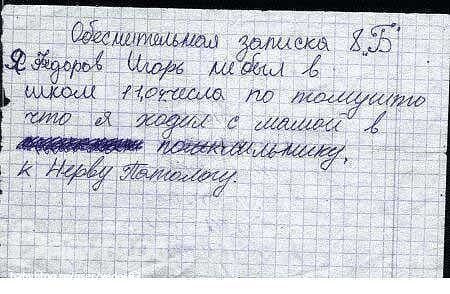 Обеснительная записка 8 „Б"
Я Федоров Игорь небыл в
школи 11,04 числа по томушто
что я ходил с мамой в
поликильнику,
к Нерву Потологу.